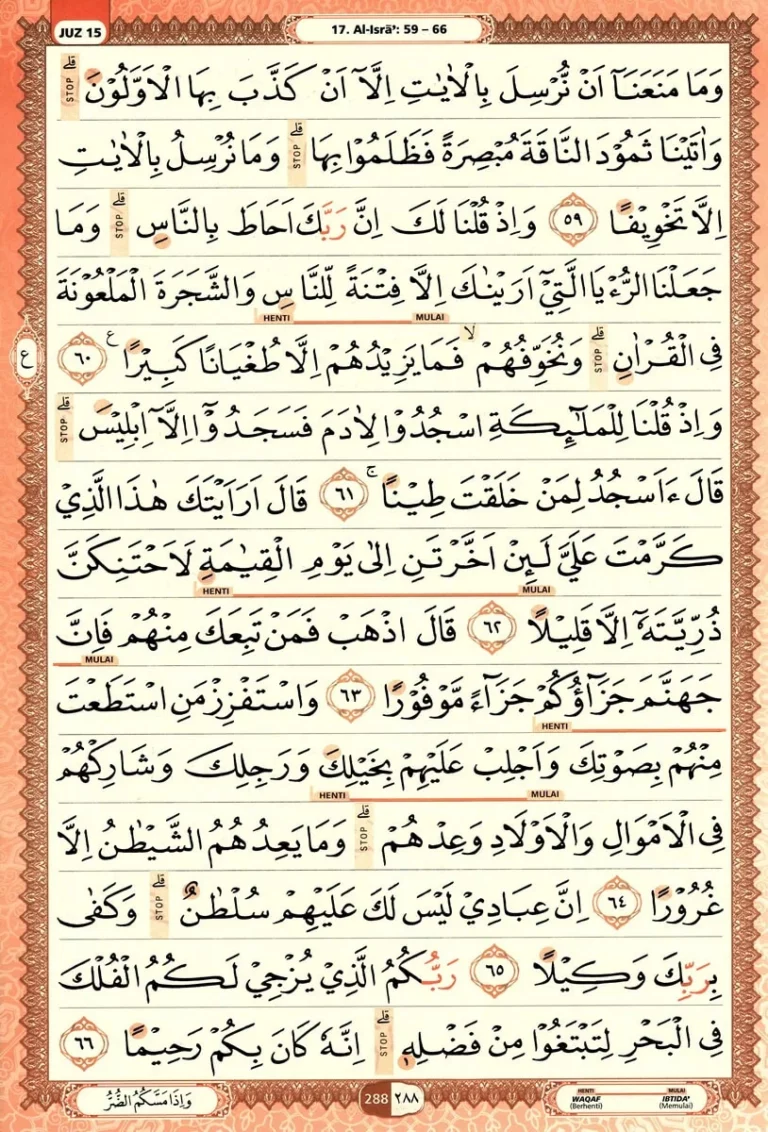 JUZ 15
17. Al-Isrāʾ: 59 – 66
وَمَا مَنَعَنَآ اَنْ نُّرْسِلَ بِالْاٰيٰتِ اِلَّآ اَنْ كَذَّبَ بِهَا الْاَوَّلُوْنَۗ STOP
وَاٰتَيْنَا ثَمُوْدَ النَّاقَةَ مُبْصِرَةً فَظَلَمُوْا بِهَاۗ STOP وَمَا نُرْسِلُ بِالْاٰيٰتِ
اِلَّا تَخْوِيْفًا ٥٩ وَاِذْ قُلْنَا لَكَ اِنَّ رَبَّكَ اَحَاطَ بِالنَّاسِۗ STOP وَمَا
جَعَلْنَا الرُّءْيَا الَّتِيْٓ اَرَيْنٰكَ اِلَّا فِتْنَةً لِّلنَّاسِ وَالشَّجَرَةَ الْمَلْعُوْنَةَ
HENTI MULAI
فِى الْقُرْاٰنِۗ STOP وَنُخَوِّفُهُمْۙ فَمَا يَزِيْدُهُمْ اِلَّا طُغْيَانًا كَبِيْرًا ࣖ ٦٠
ع
وَاِذْ قُلْنَا لِلْمَلٰۤىِٕكَةِ اسْجُدُوْا لِاٰدَمَ فَسَجَدُوْٓا اِلَّآ اِبْلِيْسَۗ STOP
قَالَ ءَاَسْجُدُ لِمَنْ خَلَقْتَ طِيْنًاۚ ٦١ قَالَ اَرَاَيْتَكَ هٰذَا الَّذِيْ
كَرَّمْتَ عَلَيَّ لَىِٕنْ اَخَّرْتَنِ اِلٰى يَوْمِ الْقِيٰمَةِ لَاَحْتَنِكَنَّ
HENTI MULAI
ذُرِّيَّتَهٗٓ اِلَّا قَلِيْلًا ٦٢ قَالَ اذْهَبْ فَمَنْ تَبِعَكَ مِنْهُمْ فَاِنَّ
MULAI
جَهَنَّمَ جَزَاۤؤُكُمْ جَزَاۤءً مَّوْفُوْرًا ٦٣ وَاسْتَفْزِزْ مَنِ اسْتَطَعْتَ
HENTI
مِنْهُمْ بِصَوْتِكَ وَاَجْلِبْ عَلَيْهِمْ بِخَيْلِكَ وَرَجِلِكَ وَشَارِكْهُمْ
HENTI MULAI
فِى الْاَمْوَالِ وَالْاَوْلَادِ وَعِدْهُمْۗ STOP وَمَا يَعِدُهُمُ الشَّيْطٰنُ اِلَّا
غُرُوْرًا ٦٤ اِنَّ عِبَادِيْ لَيْسَ لَكَ عَلَيْهِمْ سُلْطٰنٌۗ STOP وَكَفٰى
بِرَبِّكَ وَكِيْلًا ٦٥ رَبُّكُمُ الَّذِيْ يُزْجِيْ لَكُمُ الْفُلْكَ
فِى الْبَحْرِ لِتَبْتَغُوْا مِنْ فَضْلِهٖۗ STOP اِنَّهٗ كَانَ بِكُمْ رَحِيْمًا ٦٦
وَاِذَا مَسَّكُمُ الضُّرُّ
288 ٢٨٨
HENTI MULAI
WAQAF IBTIDA'
(Berhenti) (Memulai)